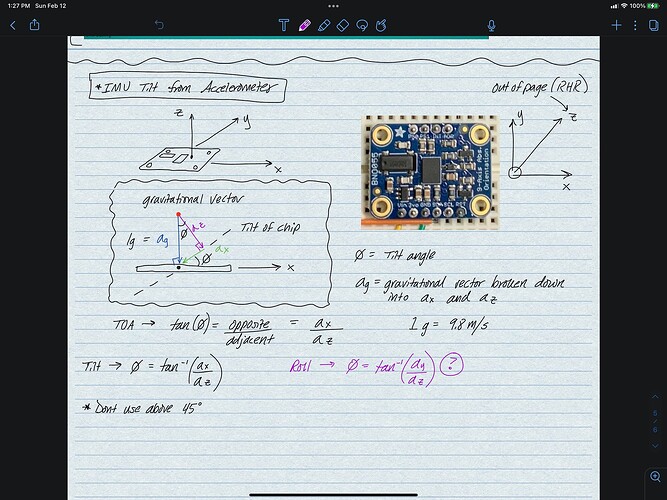 1:27 PM Sun Feb 12
100%
* IMU Tilt from Accelerometer
out of page (RHR)
z
y
x
y
z
x
BNO055
9-Axis Abs.
Orientation
gravitational vector
1g = ag
Ø
az
Tilt of chip
ax
Ø
x
Ø = Tilt angle
ag = gravitational vector broken down
into ax and az
TOA → tan(Ø) = opposite / adjacent = ax / az
1 g = 9.8 m/s
Tilt → Ø = tan⁻¹(ax / az)
Roll → Ø = tan⁻¹(ay / az) ?
* Dont use above 45°